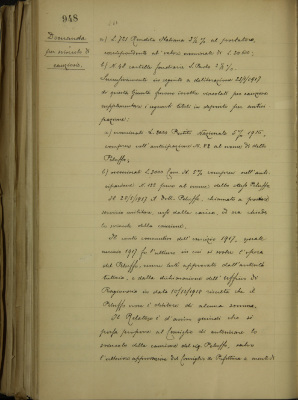 948
Domanda
per svincolo di
cauzione.
a) L. 725 Rendita Italiana 3½% al portatore,
corrispondente al valore nominale di L.
b) N. 48 cartelle fondiarie S. Paolo 3½%.
Successivamente in seguito a deliberazione 22/5/1917
di questa Giunta furono inoltre vincolati per cauzione
supplementare i seguenti titoli in deposito per antici
pazioni:
a) nominale L. 3000 Prestito Nazionale 5% 1916,
compreso nell'anticipazione N. 93 al nome di detto
Peluffo;
b) nominale L. 2000 Cons. N. 5% compreso nell'anti-
cipazione N. 122 pure al nome dello stesso Peluffo.
Il 31/5/1917 il Dott. Peluffo, chiamato a prestare
servizio militare, cessò dalla carica, di cui chiede
lo svincolo della cauzione.
Il conto consuntivo dell'esercizio 1917, quale
1917 fu l'ultimo in cui si svolse l'opera
del Peluffo, venne testè approvato dall'autorità
tutoria, e dalla dichiarazione dell'Ufficio di
Ragioneria in data risulta che il
Peluffo non è debitore di alcuna somma.
Il Relatore è d'avviso quindi che si
possa proporre al Consiglio di autorizzare lo
svincolo della cauzione del sig. Peluffo, salvo
l'ulteriore approvazione del Consiglio di Prefettura a sensi di